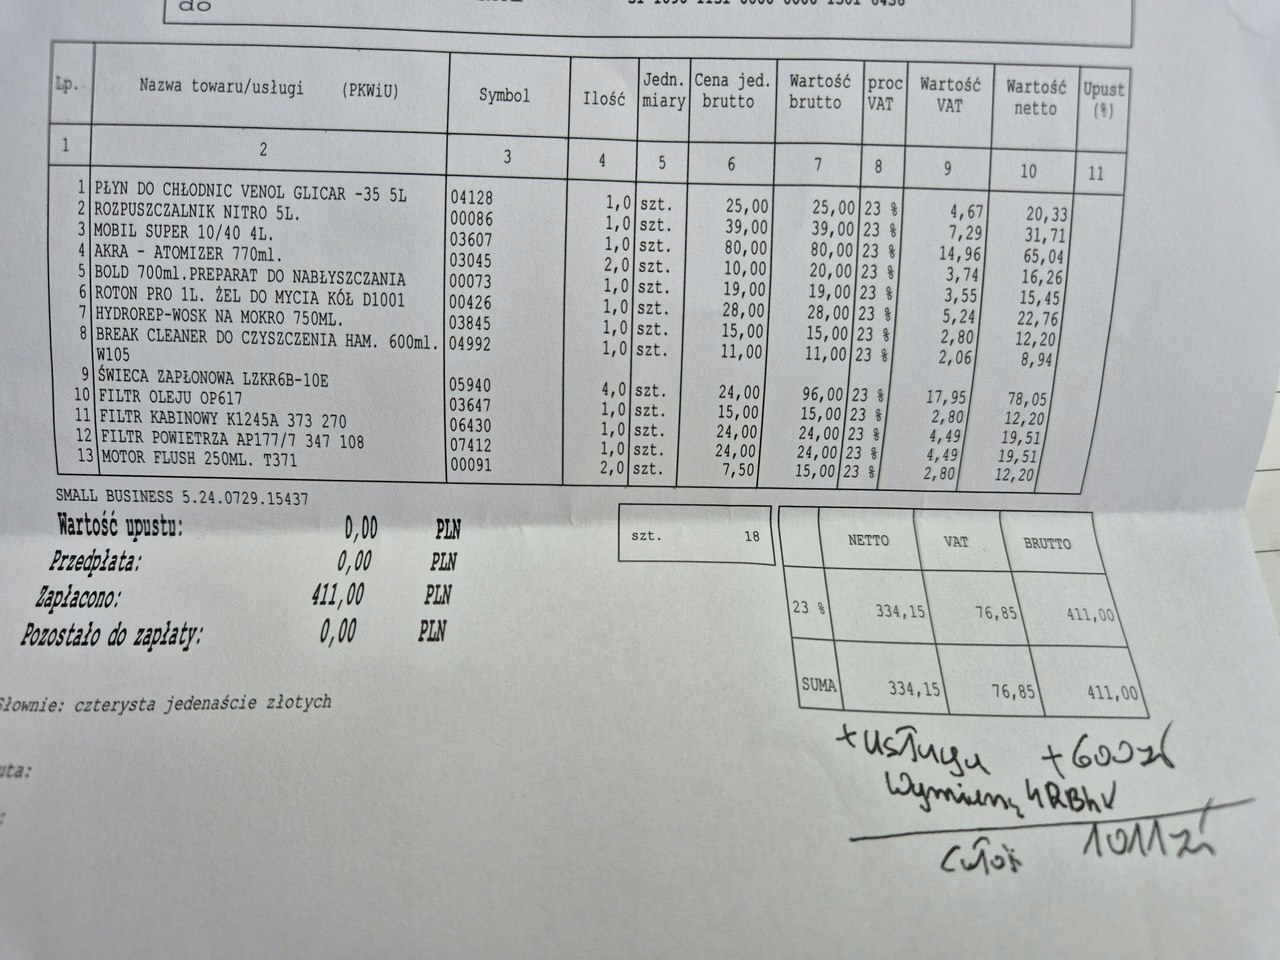 do
Lp. Nazwa towaru/usługi (PKWiU) Symbol Ilość Jedn. miary Cena jed. brutto Wartość brutto proc VAT Wartość VAT Wartość netto Upust (%)
1 2 3 4 5 6 7 8 9 10 11
1 PŁYN DO CHŁODNIC VENOL GLICAR -35 5L 04128 1,0 szt. 25,00 25,00 23 % 4,67 20,33
2 ROZPUSZCZALNIK NITRO 5L. 00086 1,0 szt. 39,00 39,00 23 % 7,29 31,71
3 MOBIL SUPER 10/40 4L. 03607 1,0 szt. 80,00 80,00 23 % 14,96 65,04
4 AKRA - ATOMIZER 770ml. 03045 2,0 szt. 10,00 20,00 23 % 3,74 16,26
5 BOLD 700ml.PREPARAT DO NABŁYSZCZANIA 00073 1,0 szt. 19,00 19,00 23 % 3,55 15,45
6 ROTON PRO 1L. ŻEL DO MYCIA KÓŁ D1001 00426 1,0 szt. 28,00 28,00 23 % 5,24 22,76
7 HYDROREP-WOSK NA MOKRO 750ML. 03845 1,0 szt. 15,00 15,00 23 % 2,80 12,20
8 BREAK CLEANER DO CZYSZCZENIA HAM. 600ml. 04992 1,0 szt. 11,00 11,00 23 % 2,06 8,94
W105
9 ŚWIECA ZAPŁONOWA LZKR6B-10E 05940 4,0 szt. 24,00 96,00 23 % 17,95 78,05
10 FILTR OLEJU OP617 03647 1,0 szt. 15,00 15,00 23 % 2,80 12,20
11 FILTR KABINOWY K1245A 373 270 06430 1,0 szt. 24,00 24,00 23 % 4,49 19,51
12 FILTR POWIETRZA AP177/7 347 108 07412 1,0 szt. 24,00 24,00 23 % 4,49 19,51
13 MOTOR FLUSH 250ML. T371 00091 2,0 szt. 7,50 15,00 23 % 2,80 12,20
SMALL BUSINESS 5.24.0729.15437
Wartość upustu: 0,00 PLN
Przedpłata: 0,00 PLN
Zapłacono: 411,00 PLN
Pozostało do zapłaty: 0,00 PLN
szt. 18
NETTO VAT BRUTTO
23 % 334,15 76,85 411,00
SUMA 334,15 76,85 411,00
Słownie: czterysta jedenaście złotych
+ usługa +600zł
wymiany
1011zł